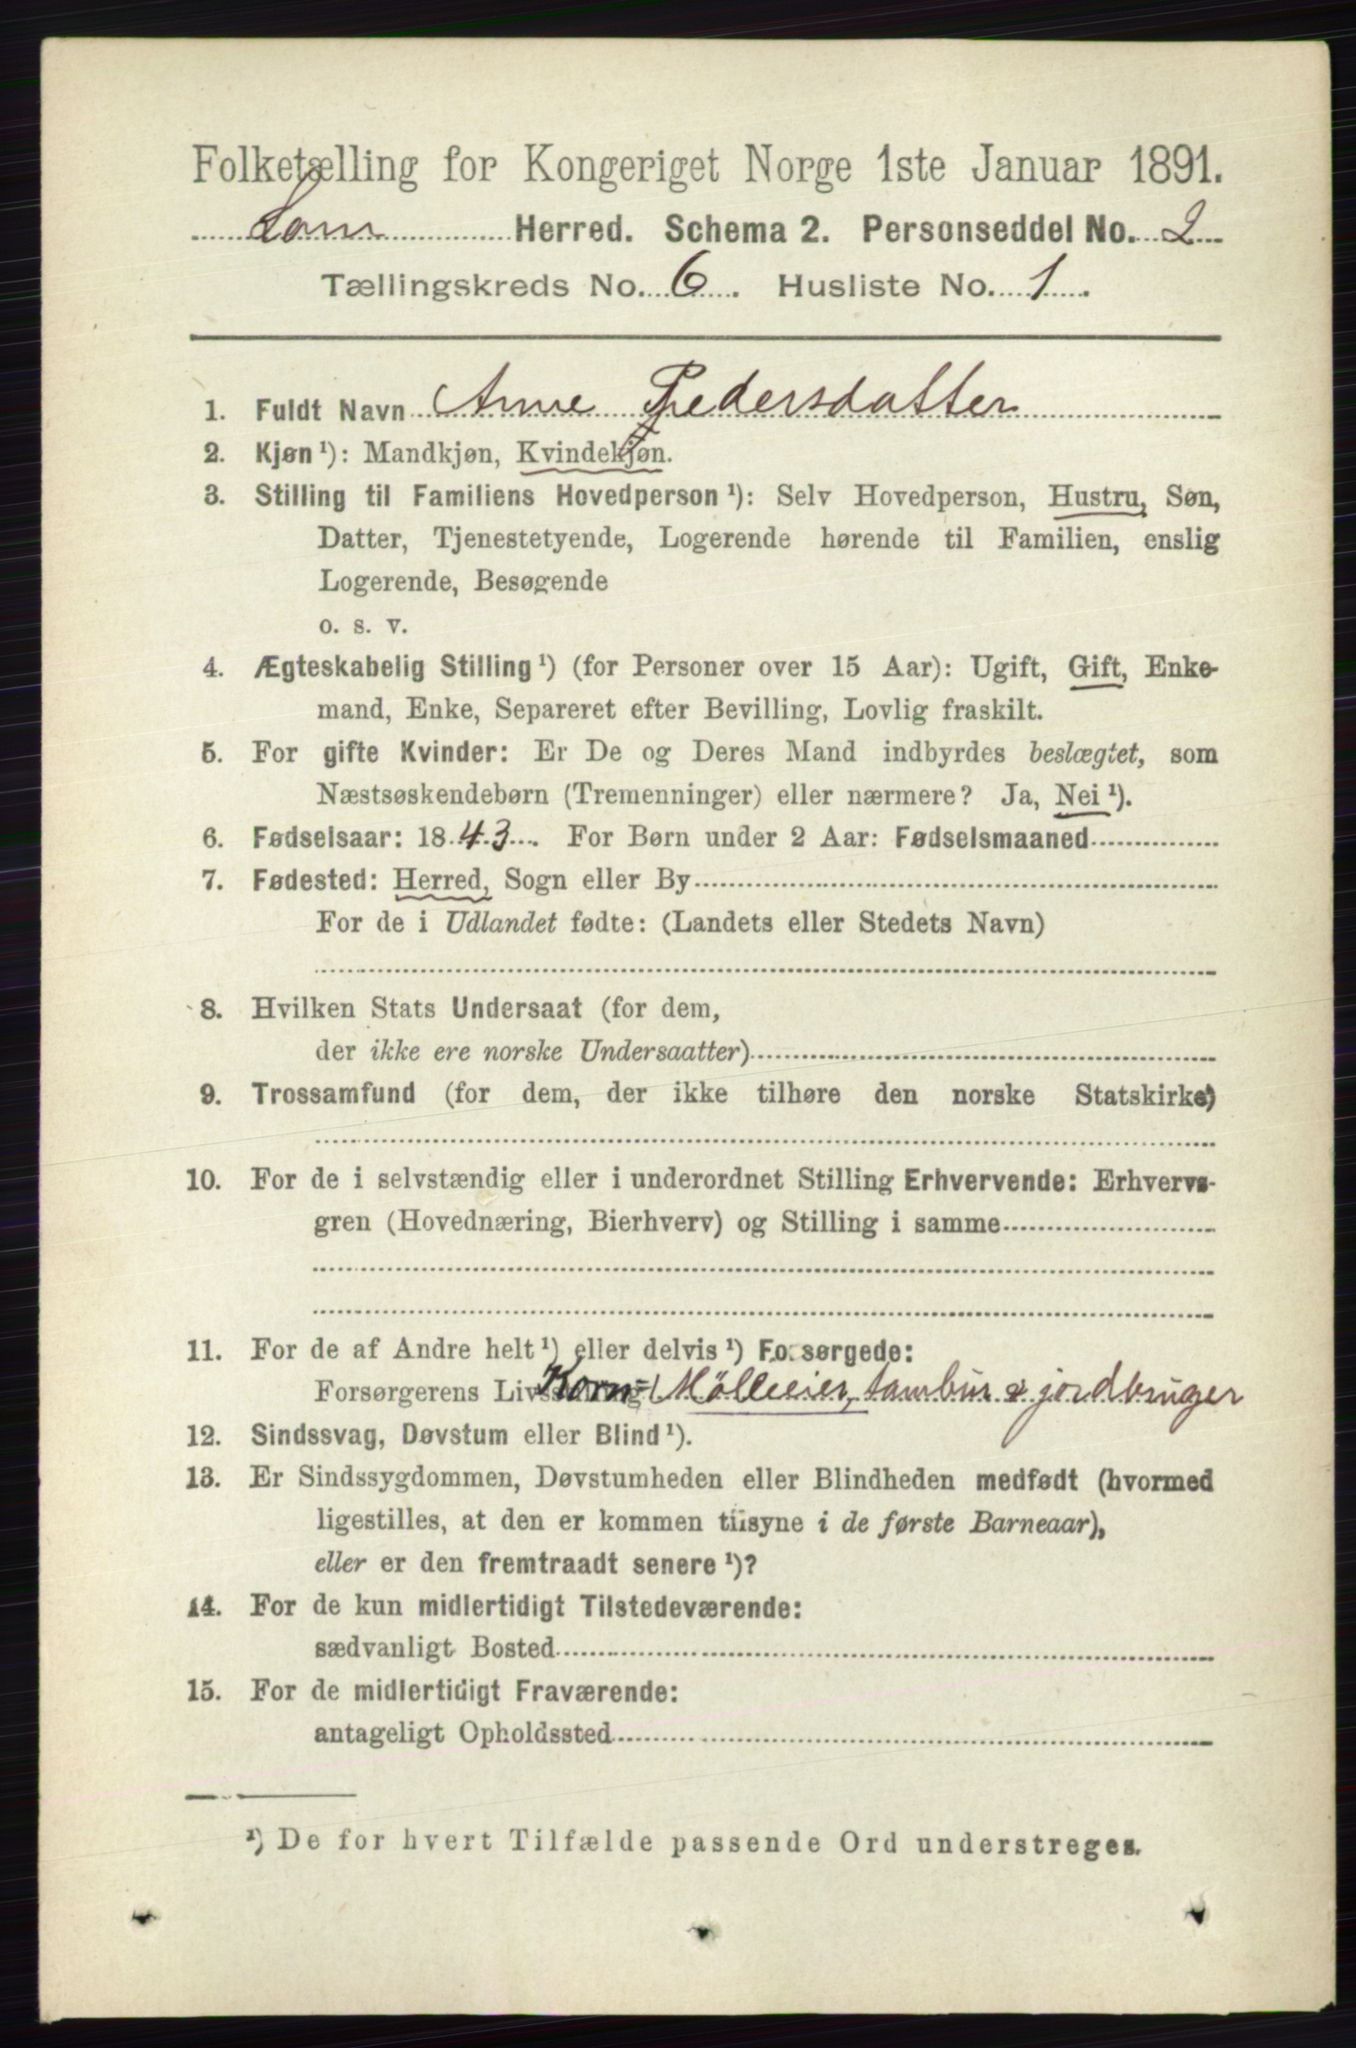 Folketælling for Kongeriget Norge 1ste Januar 1891.
Lom Herred. Schema 2. Personseddel No. 2
Tællingskreds No. 6. Husliste No. 1.
1. Fuldt Navn Anne Pedersdatter
2. Kjøn ¹): Mandkjøn, Kvindekjøn.
3. Stilling til Familiens Hovedperson ¹): Selv Hovedperson, Hustru, Søn,
Datter, Tjenestetyende, Logerende hørende til Familien, enslig
Logerende, Besøgende
o. s. v.
4. Ægteskabelig Stilling ¹) (for Personer over 15 Aar): Ugift, Gift, Enke-
mand, Enke, Separeret efter Bevilling, Lovlig fraskilt.
5. For gifte Kvinder: Er De og Deres Mand indbyrdes beslægtet, som
Næstsøskendebørn (Tremenninger) eller nærmere? Ja, Nei ¹).
6. Fødselsaar: 1843. For Børn under 2 Aar: Fødselsmaaned
7. Fødested: Herred, Sogn eller By
For de i Udlandet fødte: (Landets eller Stedets Navn)
8. Hvilken Stats Undersaat (for dem,
der ikke ere norske Undersaatter)
9. Trossamfund (for dem, der ikke tilhøre den norske Statskirke)
10. For de i selvstændig eller i underordnet Stilling Erhvervende: Erhvervs-
gren (Hovednæring, Bierhverv) og Stilling i samme
11. For de af Andre helt ¹) eller delvis ¹) Forsørgede:
Forsørgerens Livsstilling Korn= Mølleeier, & jordbruger
12. Sindssvag, Døvstum eller Blind ¹).
13. Er Sindssygdommen, Døvstumheden eller Blindheden medfødt (hvormed
ligestilles, at den er kommen tilsyne i de første Barneaar),
eller er den fremtraadt senere ¹)?
14. For de kun midlertidigt Tilstedeværende:
sædvanligt Bosted
15. For de midlertidigt Fraværende:
antageligt Opholdssted
¹) De for hvert Tilfælde passende Ord understreges.